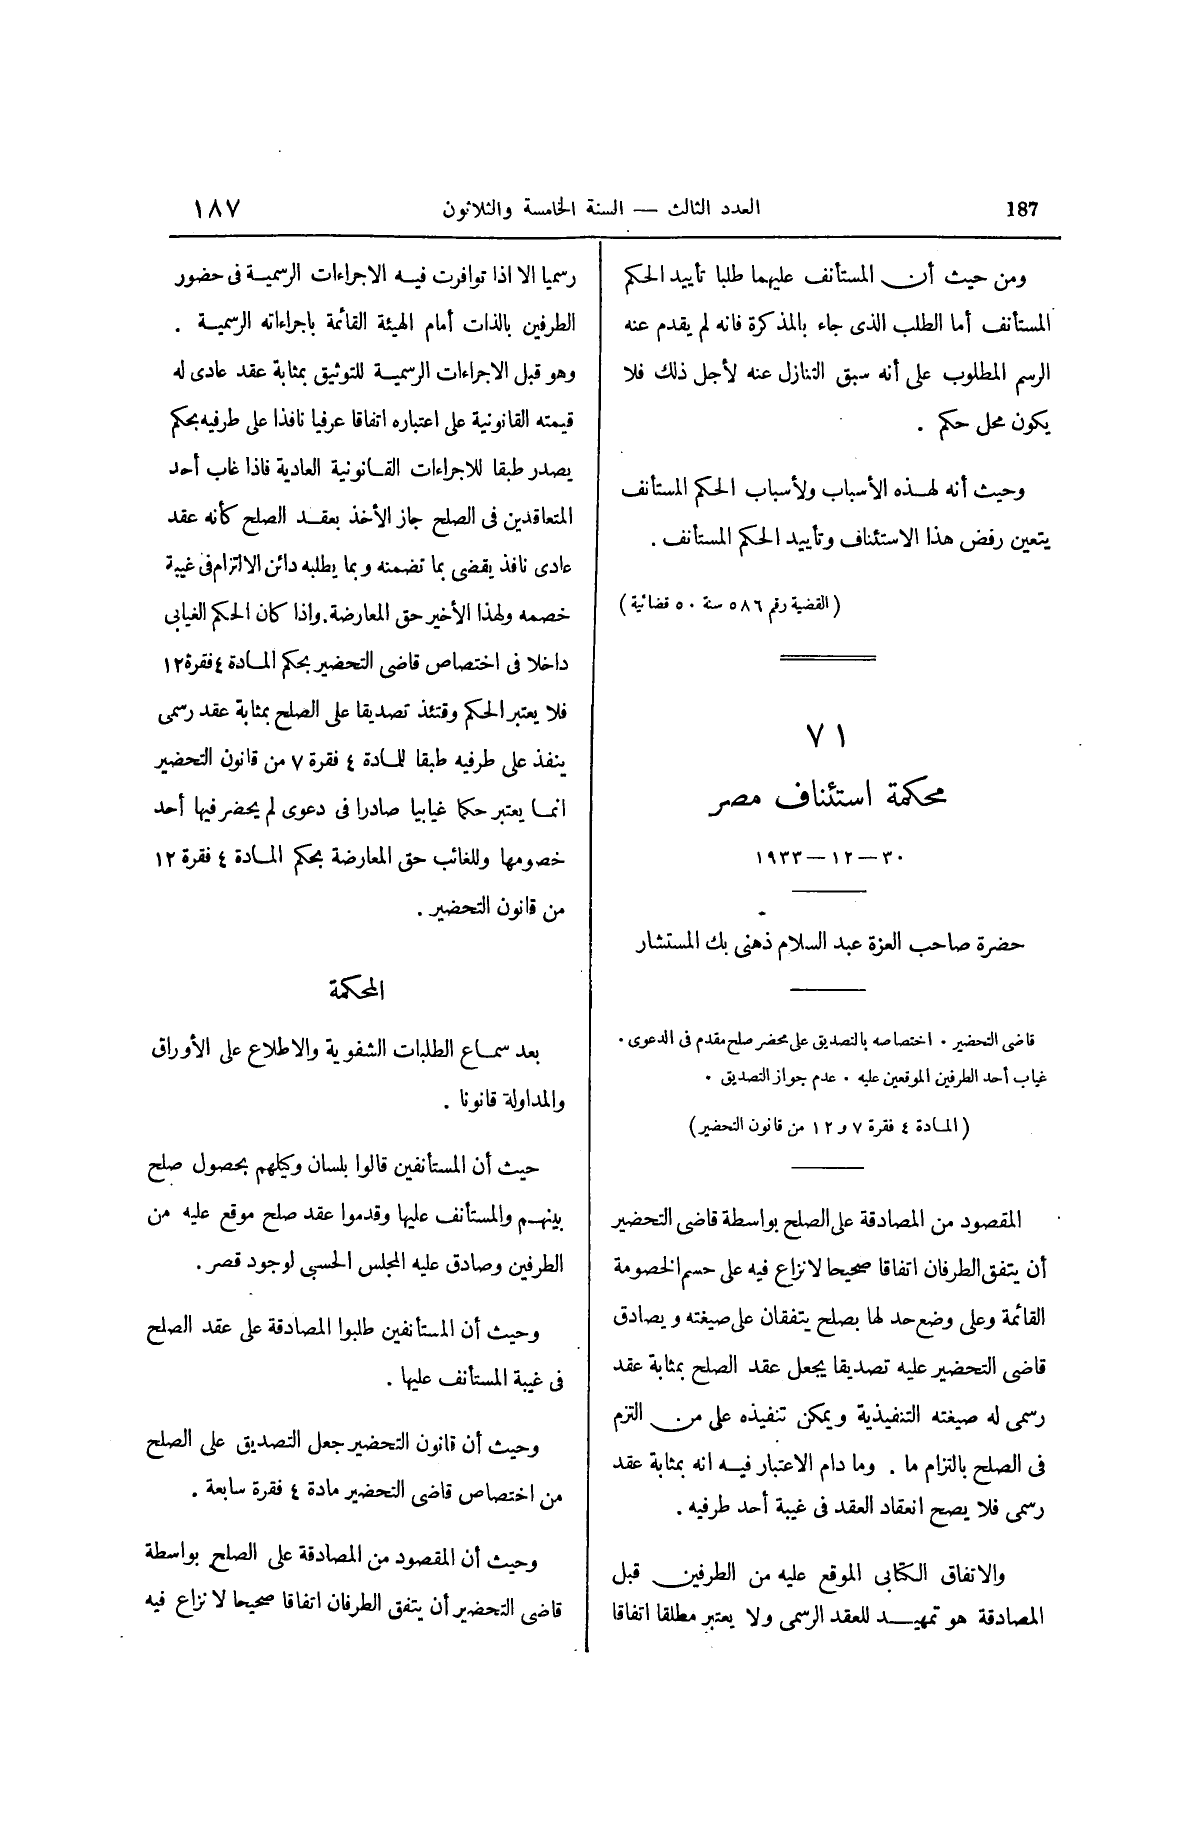 187
العدد الثالث — السنة الخامسة والثلاثون
١٨٧
ومن حيث أن المستأنف عليهما طلبا تأييد الحكم
المستأنف أما الطلب الذى جاء بالمذكرة فانه لم يقدم عنه
الرسم المطلوب على أنه سبق التنازل عنه لأجل ذلك فلا
يكون محل حكم .
وحيث أنه لهذه الأسباب ولأسباب الحكم المستأنف
يتعين رفض هذا الاستئناف وتأييد الحكم المستأنف .
( القضية رقم ٥٨٦ سنة ٥٠ قضائية )
٧١
محكمة استئناف مصر
٣٠ — ١٢ — ١٩٣٣
حضرة صاحب العزة عبد السلام ذهنى بك المستشار
قاضى التحضير . اختصاصه بالتصديق على محضر صلح مقدم فى الدعوى .
غياب أحد الطرفين الموقعين عليه . عدم جواز التصديق .
( المادة ٤ فقرة ٧ و ١٢ من قانون التحضير )
المقصود من المصادقة على الصلح بواسطة قاضى التحضير
أن يتفق الطرفان اتفاقا صحيحا لا نزاع فيه على حسم الخصومة
القائمة وعلى وضع حد لها بصلح يتفقان على صيغته ويصادق
قاضى التحضير عليه تصديقا يجعل عقد الصلح بمثابة عقد
رسمى له صيغته التنفيذية ويمكن تنفيذه على من التزم
فى الصلح بالتزام ما . وما دام الاعتبار فيه انه بمثابة عقد
رسمى فلا يصح انعقاد العقد فى غيبة أحد طرفيه .
والاتفاق الكتابى الموقع عليه من الطرفين قبل
المصادقة هو تمهيد للعقد الرسمى ولا يعتبر مطلقا اتفاقا
رسميا الا اذا توافرت فيه الاجراءات الرسمية فى حضور
الطرفين بالذات أمام الهيئة القائمة باجراءاته الرسمية .
وهو قبل الاجراءات الرسمية للتوثيق بمثابة عقد عادى له
قيمته القانونية على اعتباره اتفاقا عرفيا نافذا على طرفيه بحكم
يصدر طبقا للاجراءات القانونية العادية فاذا غاب أحد
المتعاقدين فى الصلح جاز الأخذ بعقد الصلح كأنه عقد
عادى نافذ يقضى بما تضمنه وبما يطلبه دائن الالتزام فى غيبة
خصمه ولهذا الأخير حق المعارضة. واذا كان الحكم الغيابى
داخلا فى اختصاص قاضى التحضير بحكم المادة ٤ فقرة ١٢
فلا يعتبر الحكم وقتئذ تصديقا على الصلح بمثابة عقد رسمى
ينفذ على طرفيه طبقا للمادة ٤ فقرة ٧ من قانون التحضير
انما يعتبر حكما غيابيا صادرا فى دعوى لم يحضر فيها أحد
خصومها وللغائب حق المعارضة بحكم المادة ٤ فقرة ١٢
من قانون التحضير .
المحكمة
بعد سماع الطلبات الشفوية والاطلاع على الأوراق
والمداولة قانونا .
حيث أن المستأنفين قالوا بلسان وكيلهم بحصول صلح
بينهم والمستأنف عليها وقدموا عقد صلح موقع عليه من
الطرفين وصادق عليه المجلس الحسبى لوجود قصر .
وحيث أن المستأنفين طلبوا المصادقة على عقد الصلح
فى غيبة المستأنف عليها .
وحيث أن قانون التحضير جعل التصديق على الصلح
من اختصاص قاضى التحضير مادة ٤ فقرة سابعة .
وحيث أن المقصود من المصادقة على الصلح بواسطة
قاضى التحضير أن يتفق الطرفان اتفاقا صحيحا لا نزاع فيه